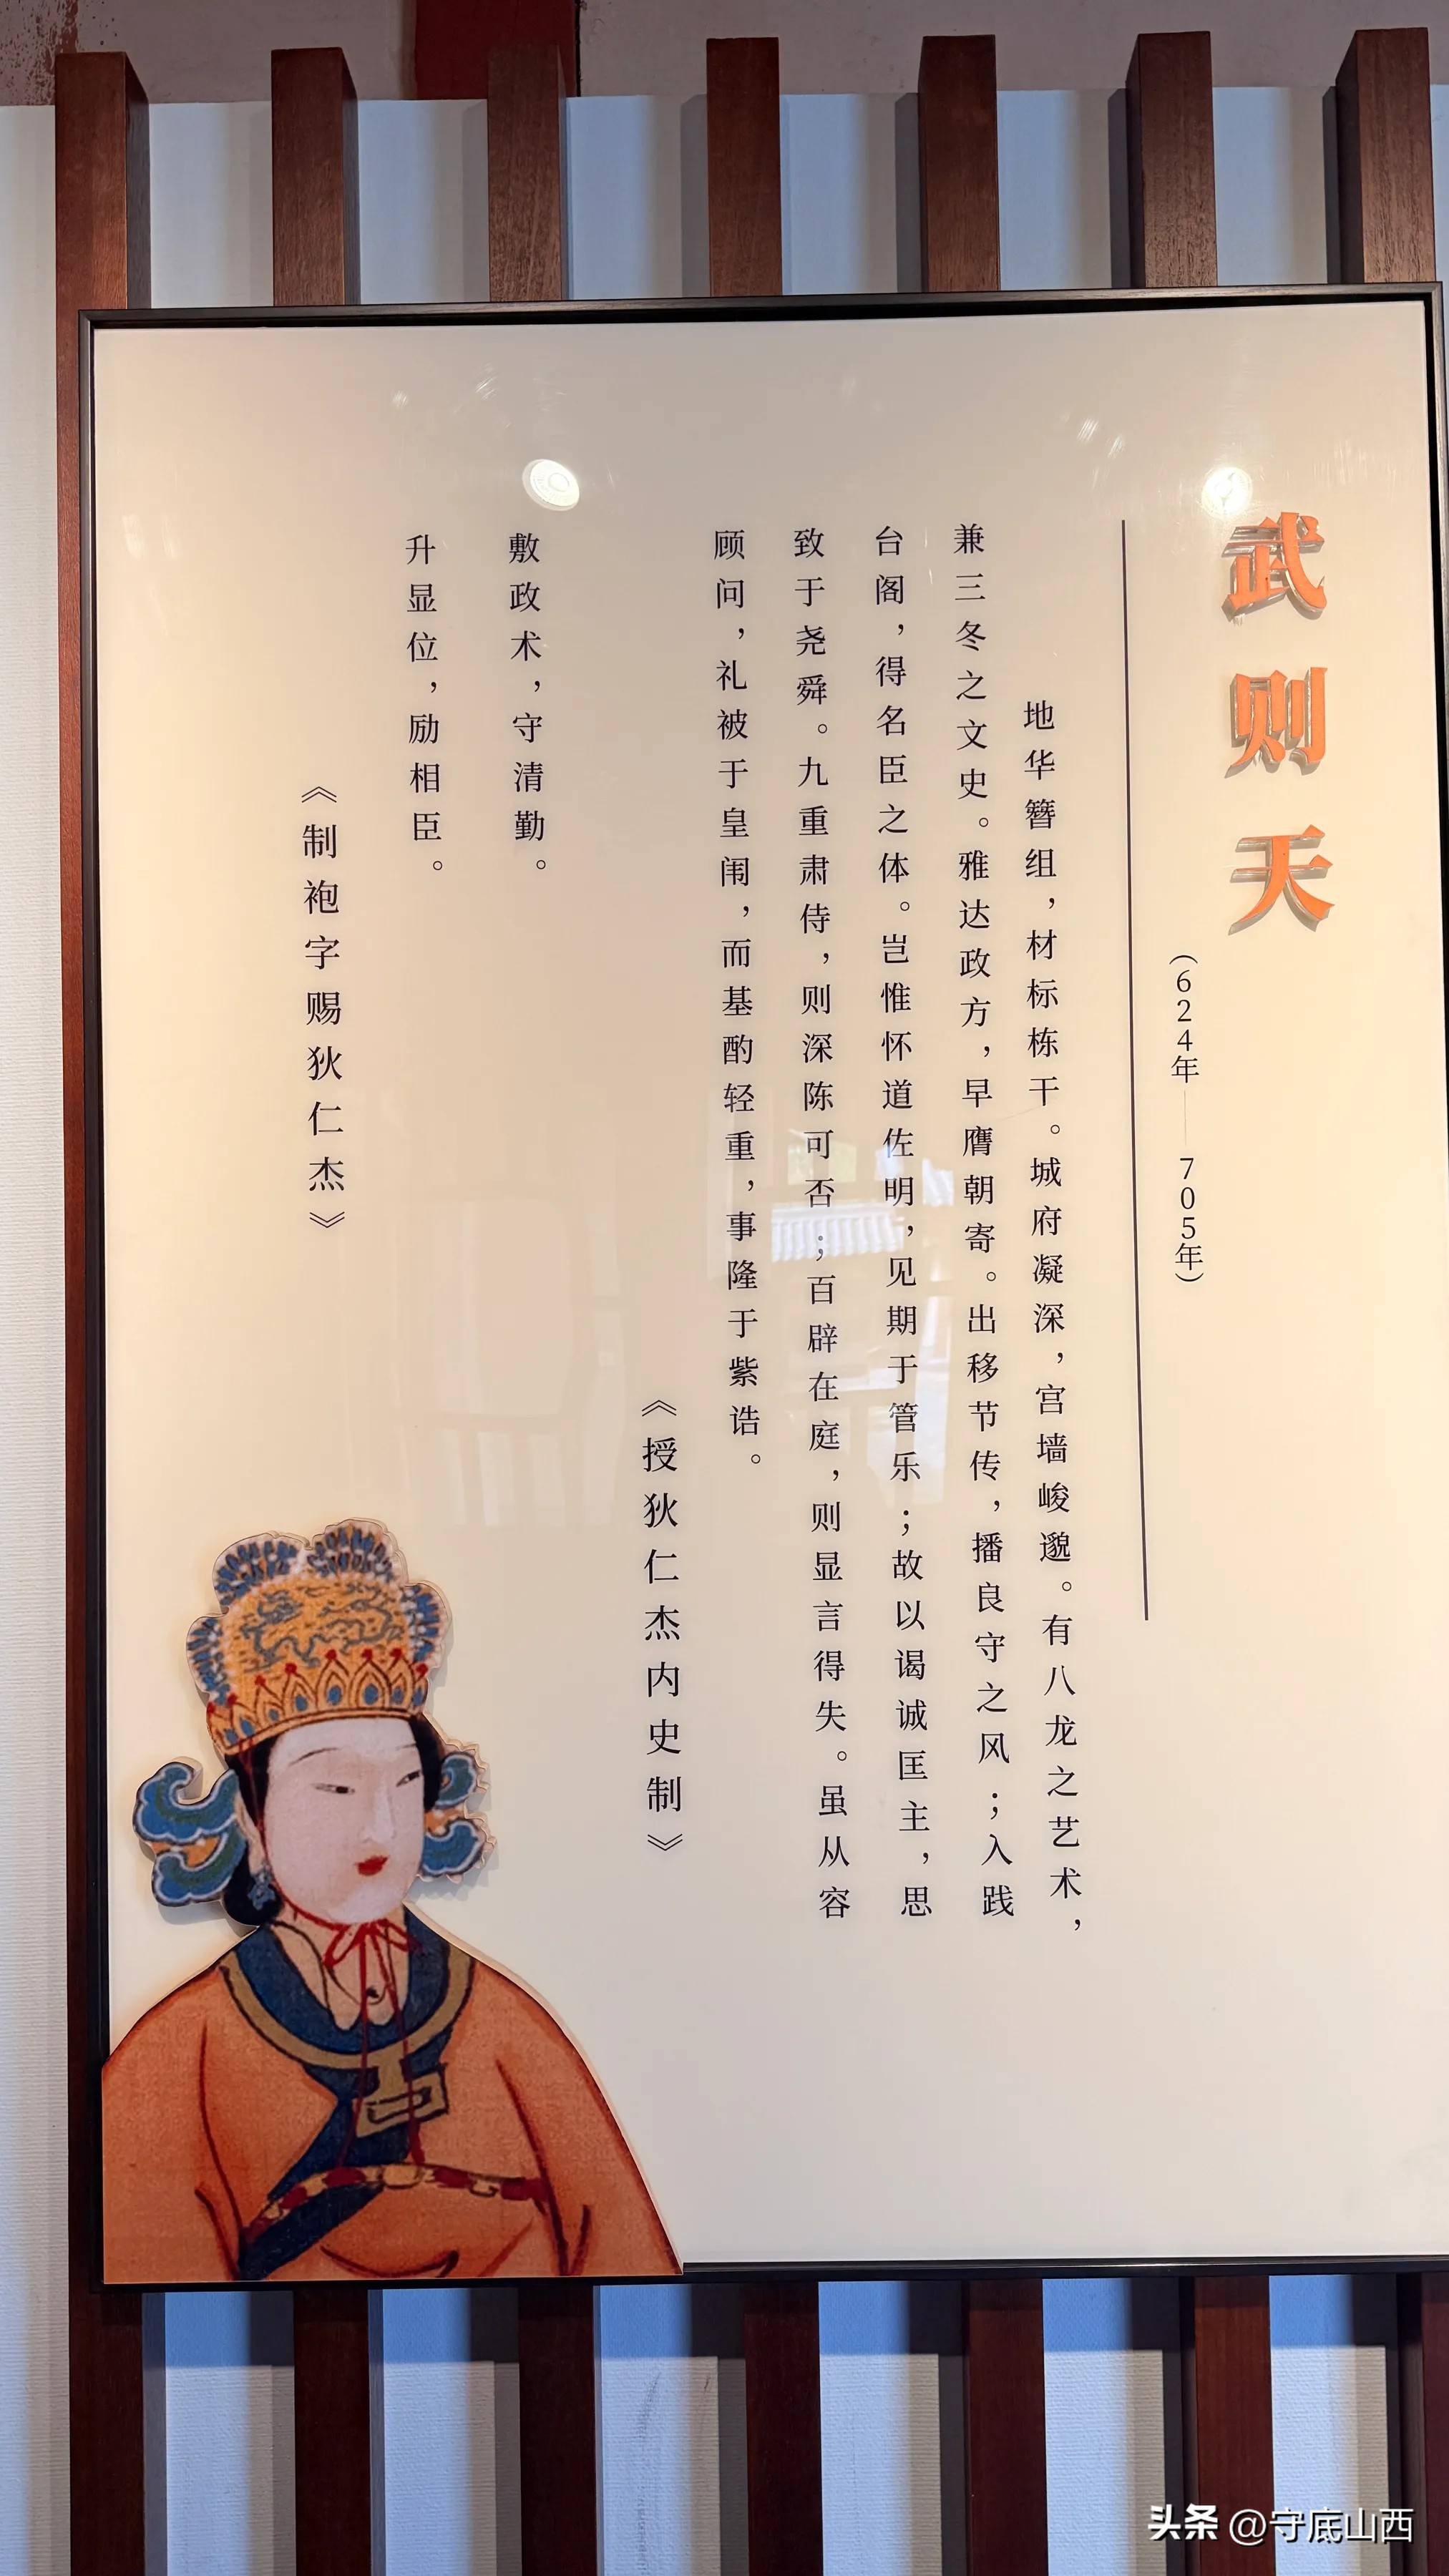 武则天
(624年——705年)
地华簪组，材标栋干。城府凝深，宫墙峻邈。有八龙之艺术，
兼三冬之文史。雅达政方，早膺朝寄。出移节传，播良守之风；入践
台阁，得名臣之体。岂惟怀道佐明，见期于管乐；故以谒诚匡主，思
致于尧舜。九重肃侍，则深陈可否；百辟在庭，则显言得失。虽从容
顾问，礼被于皇闱，而基酌轻重，事隆于紫诰。
《授狄仁杰内史制》
敷政术，守清勤。
升显位，励相臣。
《制袍字赐狄仁杰》
头条 @守底山西